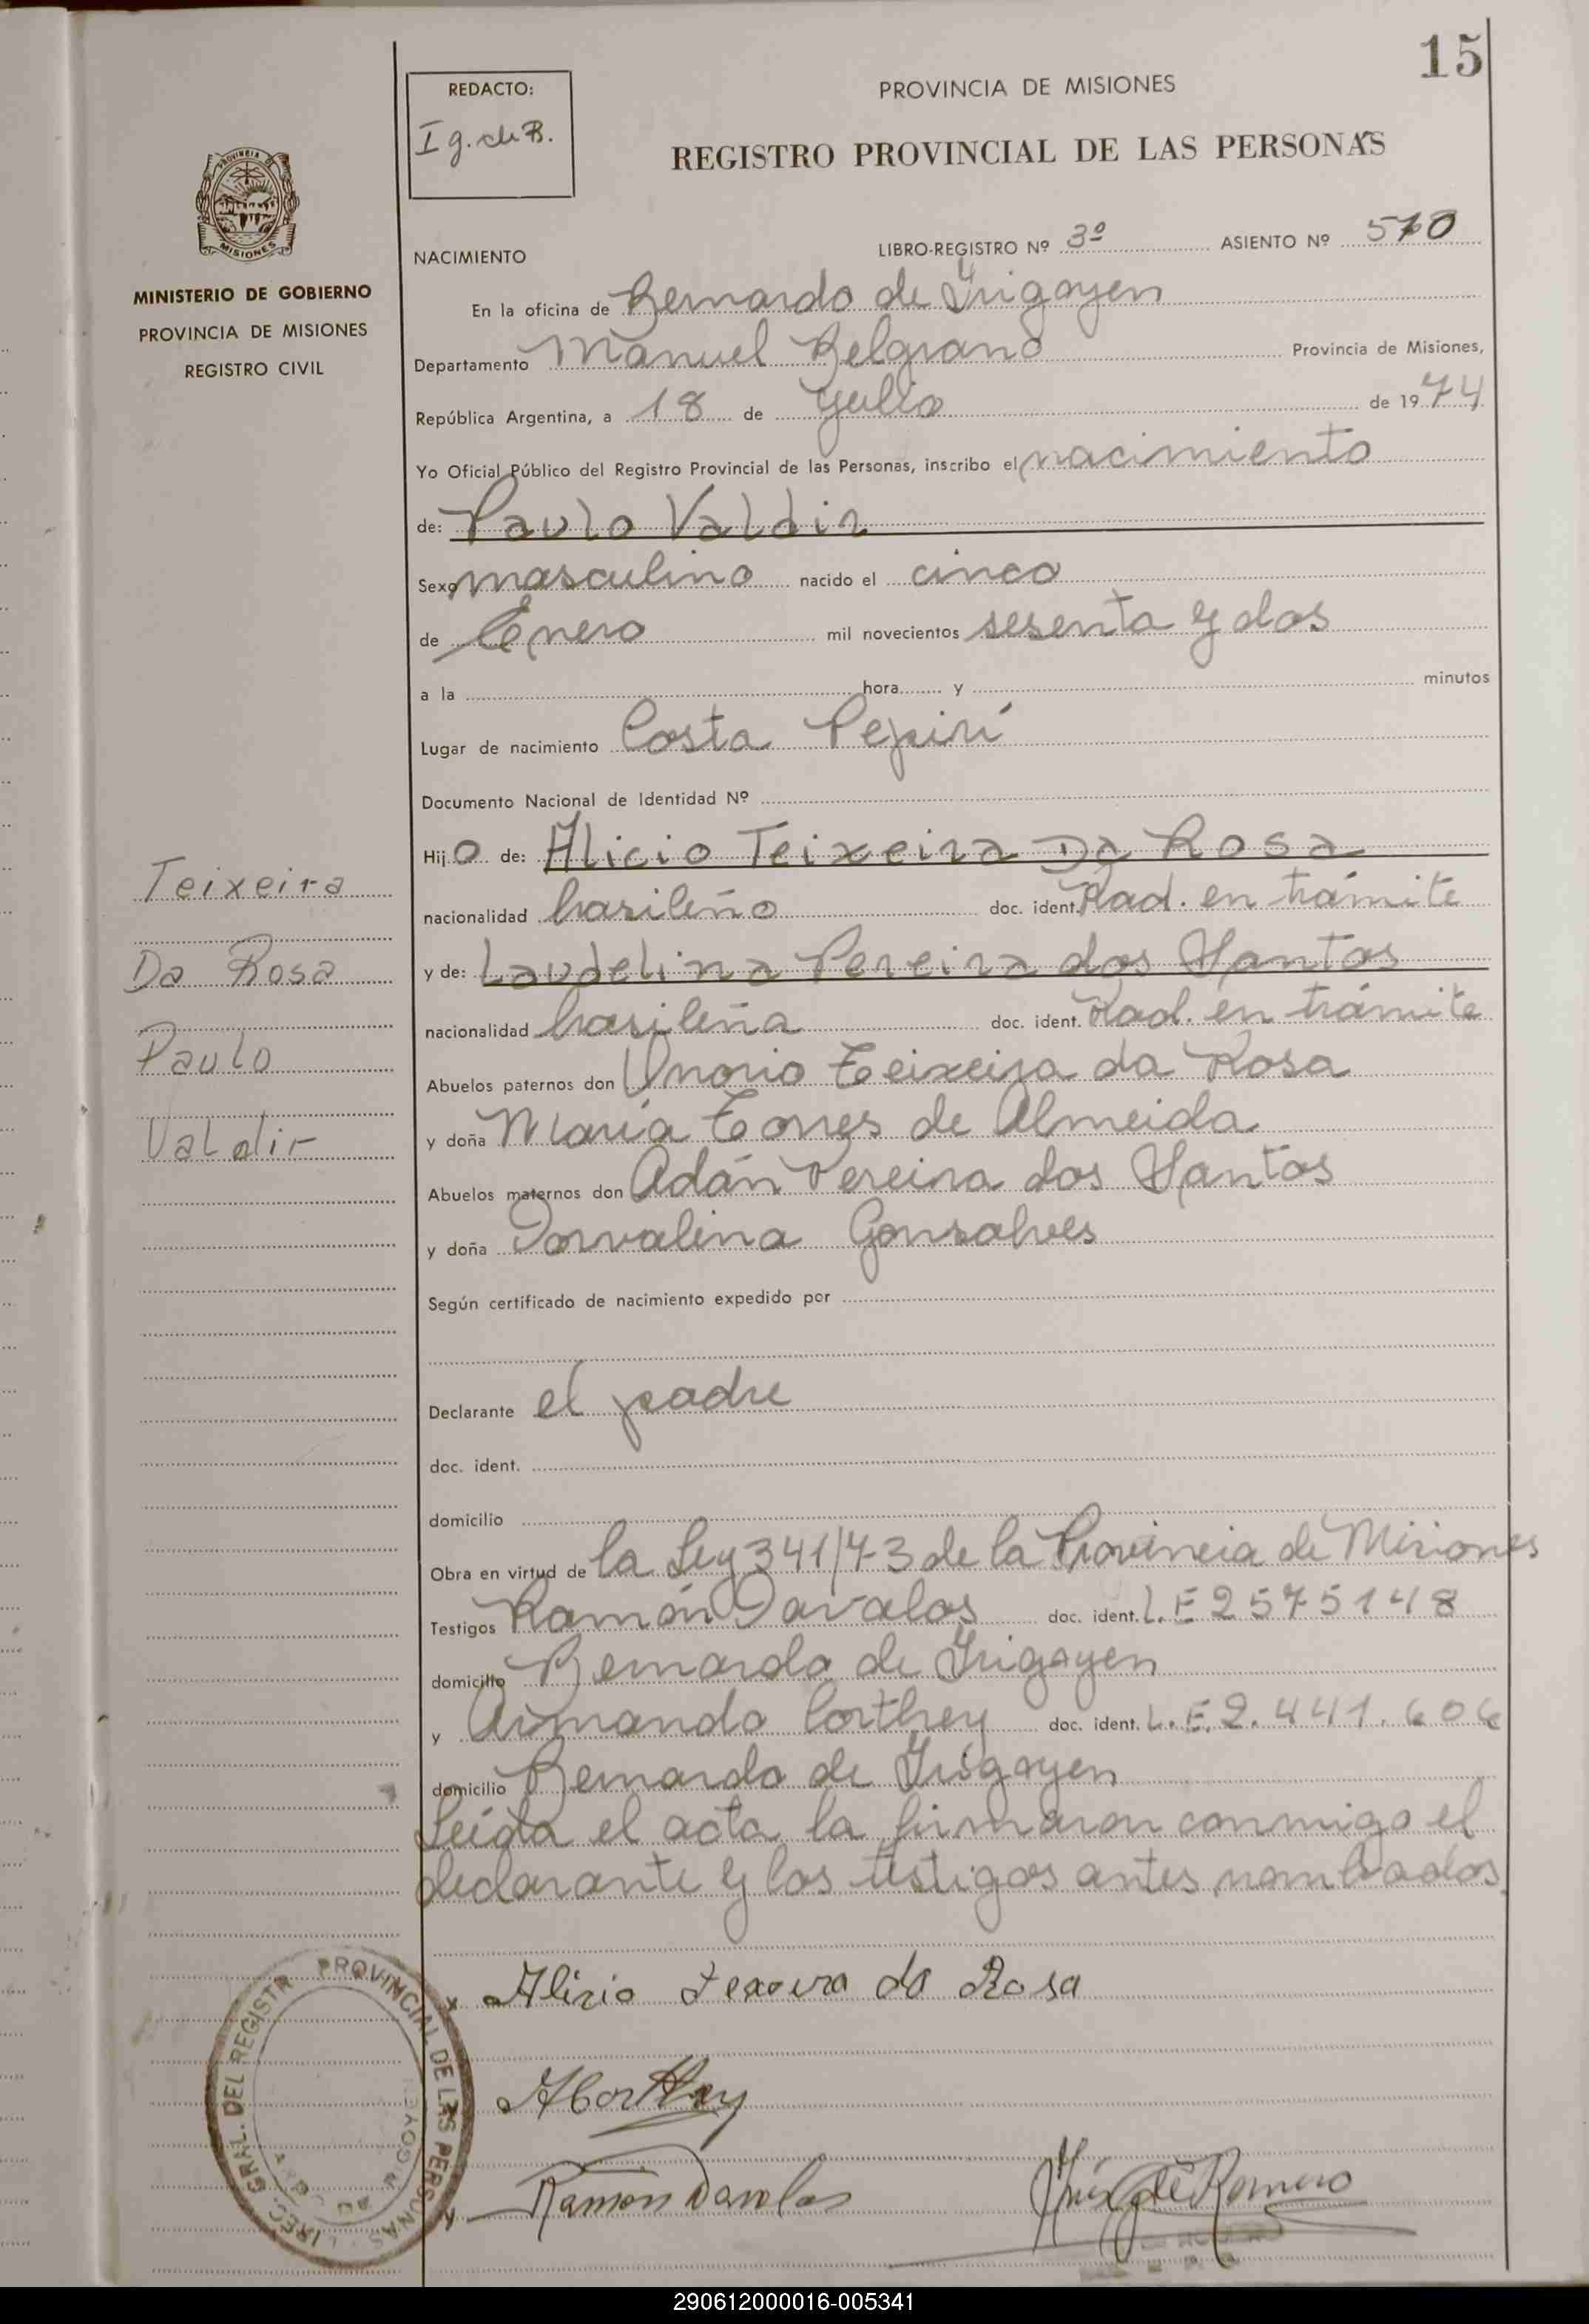 15
REDACTO:
I g. de B.
PROVINCIA DE MISIONES
REGISTRO PROVINCIAL DE LAS PERSONAS
PROVINCIA DE
MISIONES
MINISTERIO DE GOBIERNO
PROVINCIA DE MISIONES
REGISTRO CIVIL
NACIMIENTO
LIBRO-REGISTRO Nº 3º ASIENTO Nº 510
En la oficina de Bernardo de Irigoyen
Departamento Manuel Belgrano Provincia de Misiones,
República Argentina, a 18 de Julio de 1974
Yo Oficial Público del Registro Provincial de las Personas, inscribo el nacimiento
de: Paulo Valdir
Sexo masculino nacido el cinco
de Enero mil novecientos sesenta y dos
a la hora y minutos
Lugar de nacimiento Costa Pepirí
Documento Nacional de Identidad Nº
Hijo de: Alicio Teixeira Da Rosa
nacionalidad brasileño doc. ident. Rad. en trámite
y de: Laudelina Pereira dos Santos
nacionalidad brasileña doc. ident. Rad. en trámite
Abuelos paternos don Onorio Teixeira da Rosa
y doña María Torres de Almeida
Abuelos maternos don Adán Pereira dos Santos
y doña Dorvalina Gonsalves
Según certificado de nacimiento expedido por
Declarante el padre
doc. ident.
domicilio
Obra en virtud de la Ley 341/73 de la Provincia de Misiones
Testigos Ramón Davalos doc. ident. L.E 2575148
domicilio Bernardo de Irigoyen
y Armando Corthey doc. ident. L.E. 2.441.606
domicilio Bernardo de Irigoyen
Leída el acta la firmaron conmigo el
declarante y los testigos antes nombrados.
Teixeira
Da Rosa
Paulo
Valdir
Alizio Texeira da Rosa
ACorthey
Ramón Davalos
DIREC. GRAL. DEL REGISTR PROVINCIAL DE LAS PERSONAS
290612000016-005341